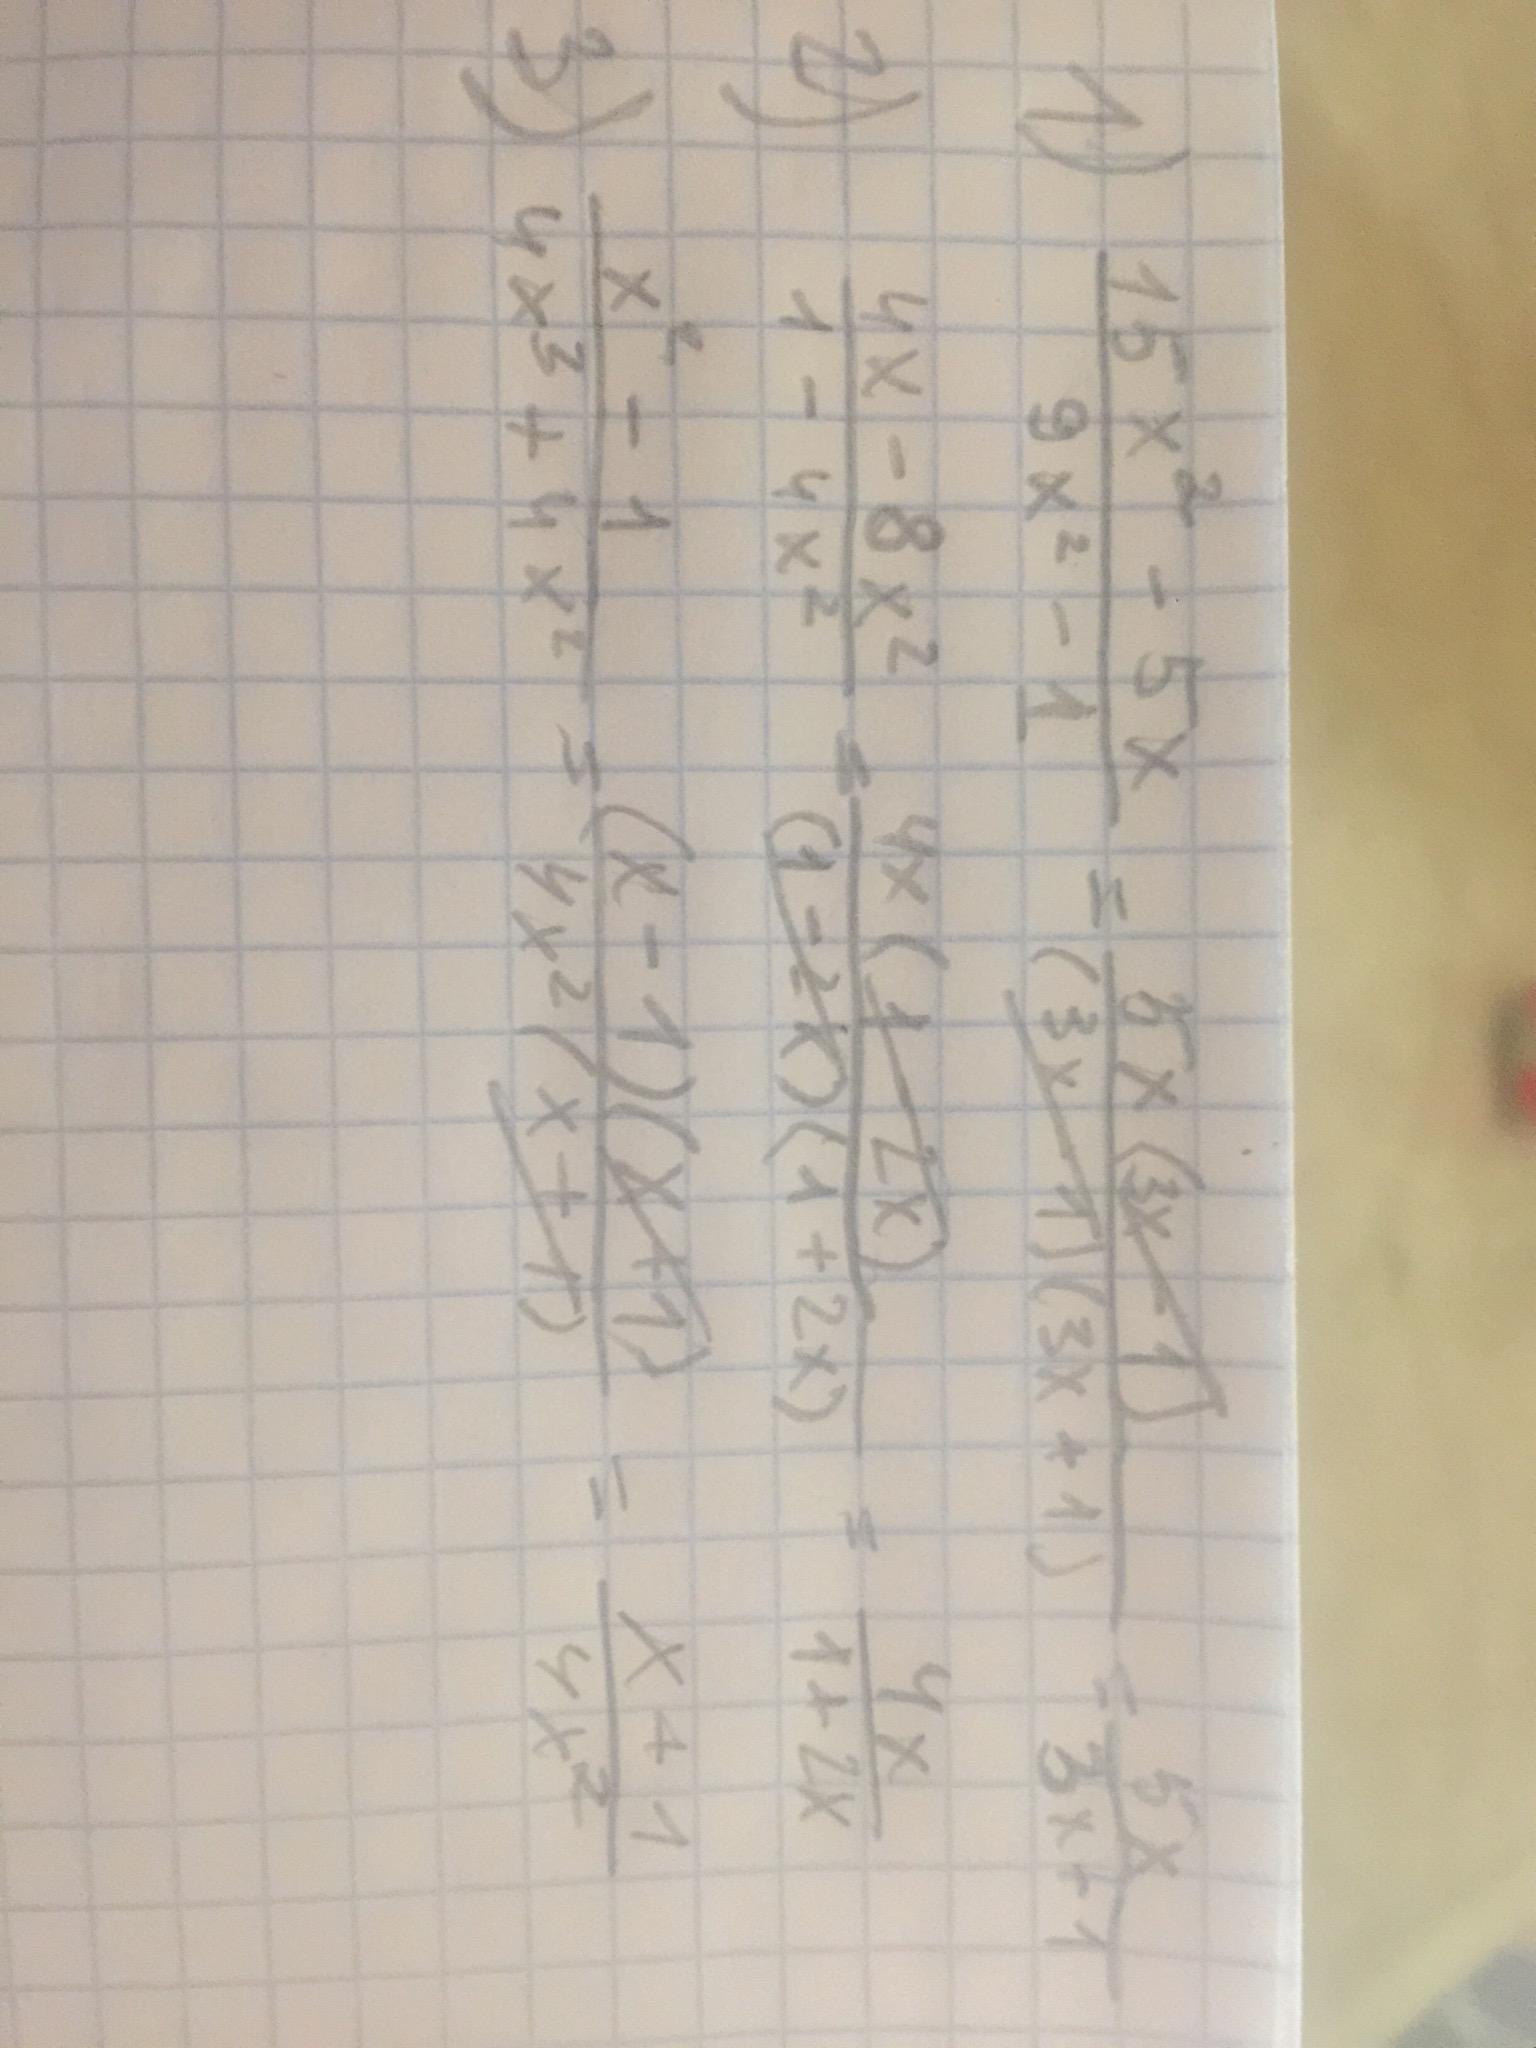 1) (15x² - 5x)/(9x² - 1) = (5x(3x - 1))/((3x - 1)(3x + 1)) = 5x/(3x + 1)
2) (4x - 8x²)/(1 - 4x²) = (4x(1 - 2x))/((1 - 2x)(1 + 2x)) = 4x/(1 + 2x)
3) (x² - 1)/(4x³ + 4x²) = ((x - 1)(x + 1))/(4x²(x + 1)) = (x + 1)/(4x²)